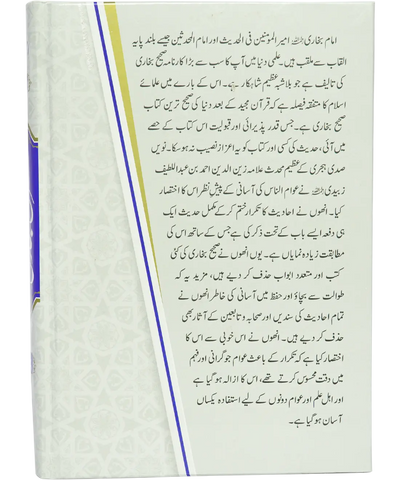 امام بخاری رحمۃ اللہ علیہ امیر المومنین فی الحدیث اور امام المحدثین جیسے بلند پایہ
القاب سے ملقب ہیں۔ علمی دنیا میں آپ کا سب سے بڑا کارنامہ صحیح بخاری
کی تالیف ہے جو بلاشبہ عظیم شاہکار ہے۔ اس کے بارے میں علمائے
اسلام کا متفقہ فیصلہ ہے کہ قرآن مجید کے بعد دنیا کی صحیح ترین کتاب
صحیح بخاری ہے۔ جس قدر پذیرائی اور قبولیت اس کتاب کے حصے
میں آئی، حدیث کی کسی اور کتاب کو یہ اعزاز نصیب نہ ہو سکا۔ نویں
صدی ہجری کے عظیم محدث علامہ زین الدین احمد بن عبداللطیف
زبیدی رحمۃ اللہ علیہ نے عوام الناس کی آسانی کے پیش نظر اس کا اختصار
کیا۔ انھوں نے احادیث کا تکرار ختم کر کے مکمل حدیث ایک ہی
دفعہ ایسے باب کے تحت ذکر کی ہے جس کے ساتھ اس کی
مطابقت زیادہ نمایاں ہے۔ یوں انھوں نے صحیح بخاری کی کئی
کتب اور متعدد ابواب حذف کر دیے ہیں، مزید یہ کہ
طوالت سے بچاؤ اور حفظ میں آسانی کی خاطر انھوں نے
تمام احادیث کی سندیں اور صحابہ و تابعین کے آثار بھی
حذف کر دیے ہیں۔ انھوں نے اس خوبی سے اس کا
اختصار کیا ہے کہ تکرار کے باعث عوام جو گرانی اور فہم
میں دقت محسوس کرتے تھے، اس کا ازالہ ہو گیا ہے
اور اہل علم اور عوام دونوں کے لیے استفادہ یکساں
آسان ہو گیا ہے۔